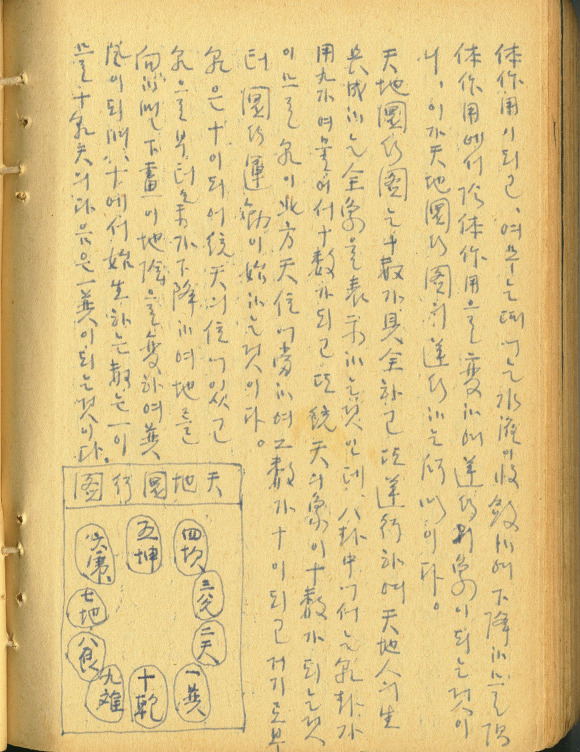 体作用이되고, 여무는때에는水液이收斂하며下降하므로陽
体作用에서陰体作用으로變하며逆行의象이되는것이
니, 이가天地圓行圖의逆行하는所以이다。
天地圓行圖는十數가具全하고또逆行하며天地人의生
長成하는全象을表示하는것인데, 八卦中에서는乾卦가
用九가여물어서十數가되고또統天의象이十數가되는것
이므로乾이北方天位에當하여그數가十이되고거기로부
터圓의運動이始하는것이다。
乾은十이되어統天의位에있고
乾으로부터氣가下降하여地를
向하면下畫이地陰을變하여巽
風이되며, 十에서始生하는數는一이
므로十乾天의다음은一巽이되는것이다.
天地圓行圖
四坎
五坤
六震
三兌
七地
二天
八艮
一巽
十乾
九離